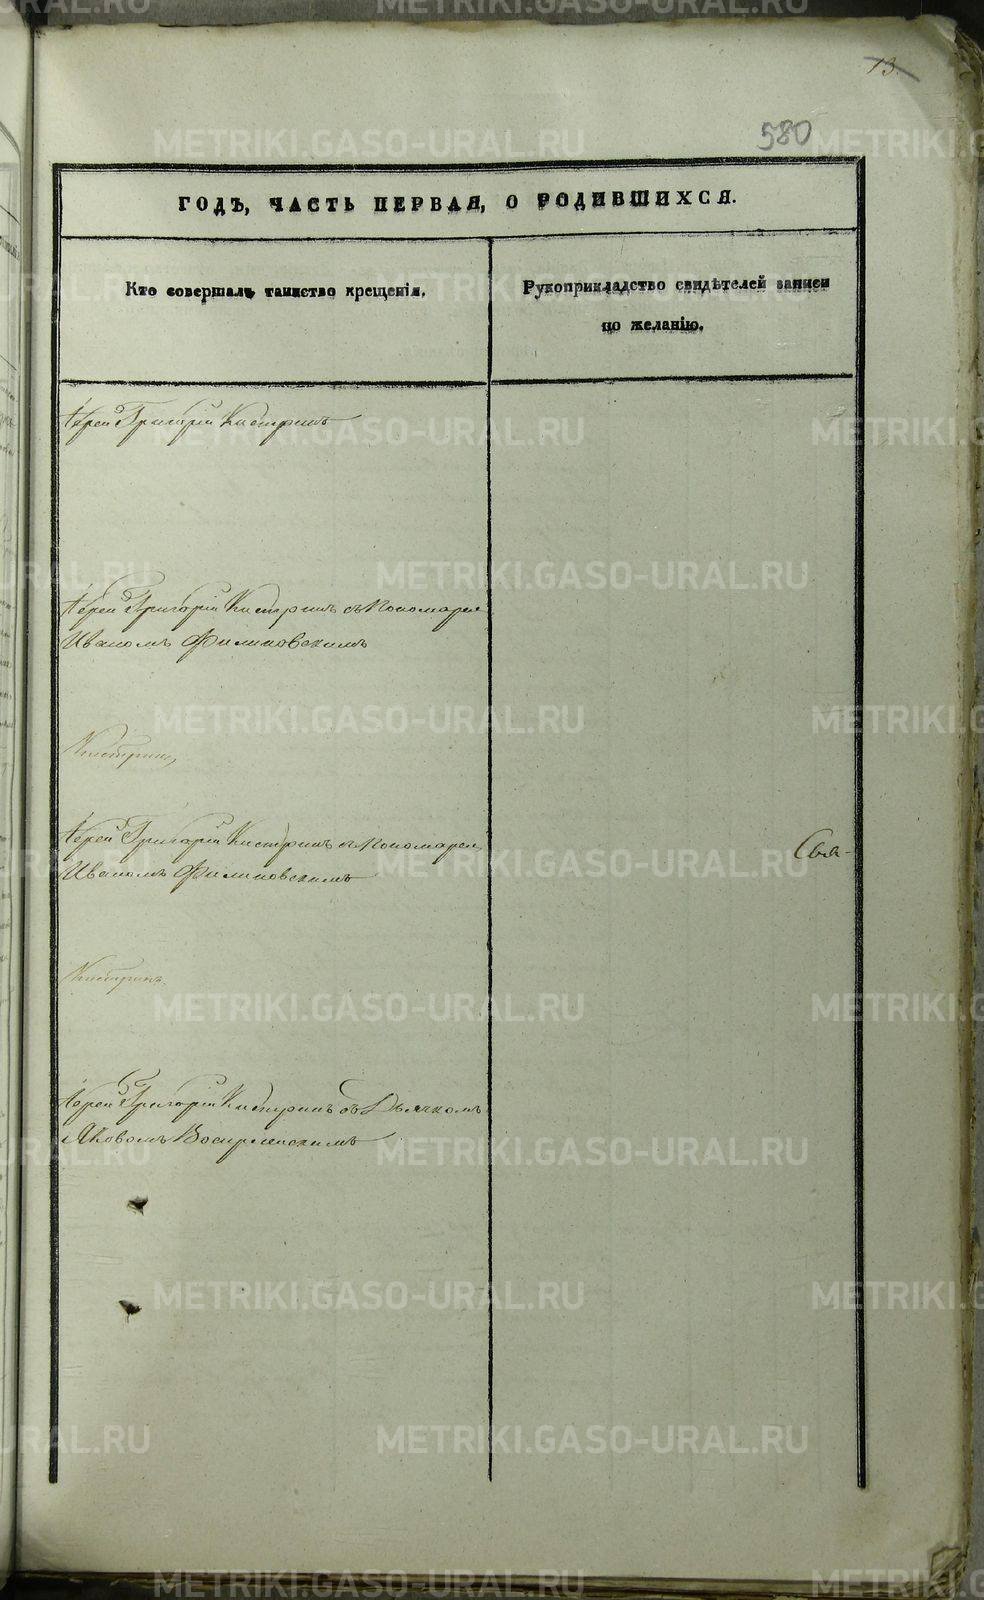 13.
580
ГОДЪ, ЧАСТЬ ПЕРВАЯ, О РОДИВШИХСЯ.
Кто совершалъ таинство крещенія.
Рукоприкладство свидѣтелей записи
по желанію.
Іерей Григорій Кистринъ
Іерей Григорій Кистринъ съ Пономаремъ
Иваномъ Филиповскимъ
Кистринъ
Іерей Григорій Кистринъ съ Пономарем
Свя-
Иваномъ Филиповскимъ
Кистринъ
Іерей Григорій Кистринъ съ Дьячкомъ
Яковомъ
METRIKI.GASO-URAL.RU